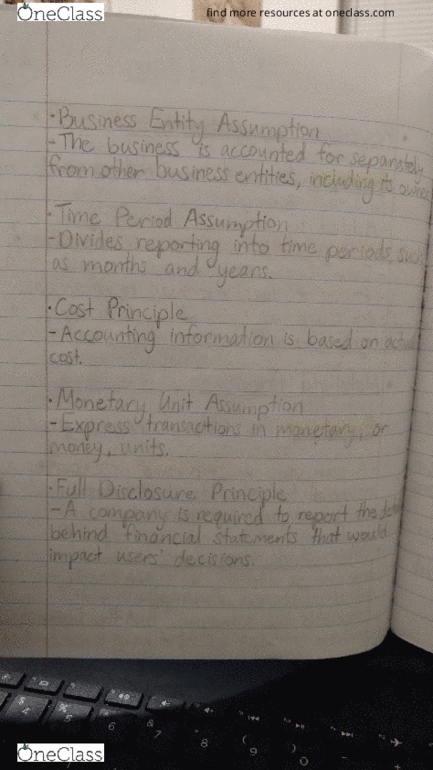 OneClass
find more resources at oneclass.com
·Business Entity Assumption
-The business is accounted for separately
from other business entities, including its owner
·Time Period Assumption
-Divides reporting into time periods such
as months and years.
·Cost Principle
-Accounting information is based on
cost.
·Monetary Unit Assumption
-Express transactions in monetary, or
money, units.
·Full Disclosure Principle
-A company is required to report the
behind financial statements that would
impact users' decisions.
$
4
%
5
^
6
&
7
*
8
(
9
)
0
OneClass